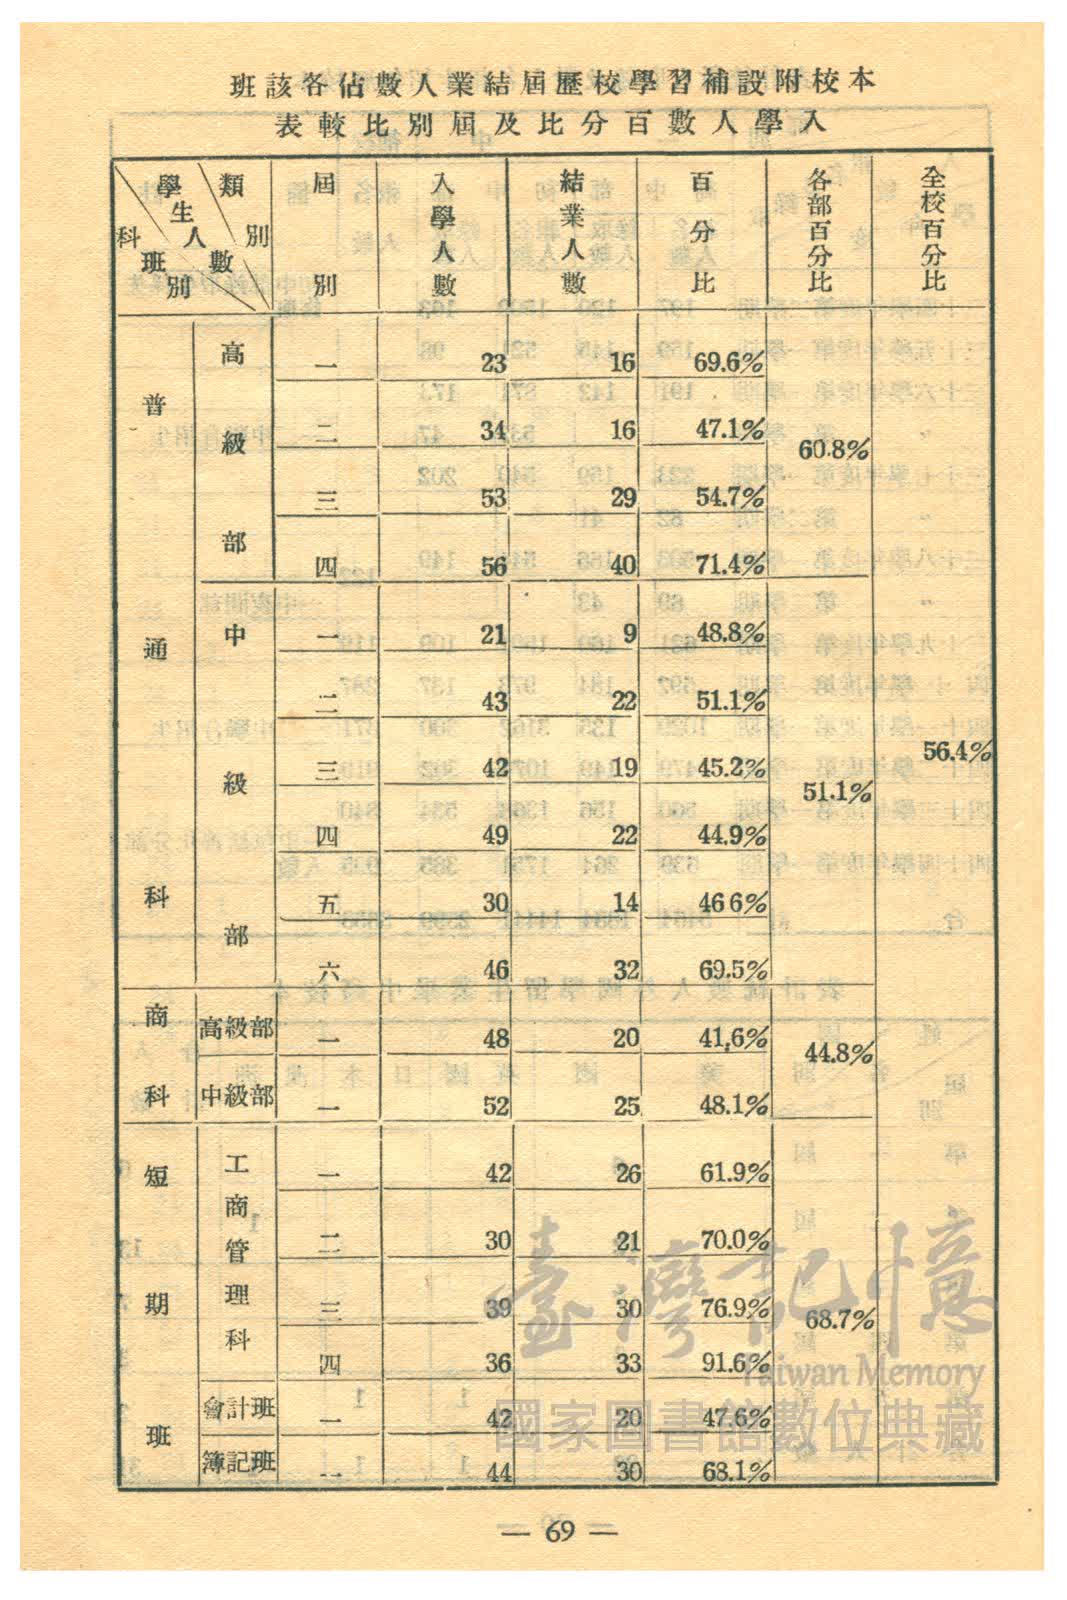 本校附設補習學校歷屆結業人數佔各該班
入學人數百分比及屆別比較表
類別 學生人數 科班別 屆別 入學人數 結業人數 百分比 各部百分比 全校百分比
普通科 高級部 一 23 16 69.6% 60.8% 56.4%
二 34 16 47.1%
三 53 29 54.7%
四 56 40 71.4%
中級部 一 21 9 48.8% 51.1%
二 43 22 51.1%
三 42 19 45.2%
四 49 22 44.9%
五 30 14 46 6%
六 46 32 69.5%
商科 高級部 一 48 20 41.6% 44.8%
中級部 一 52 25 48.1%
短期班 工商管理科 一 42 26 61.9% 68.7%
二 30 21 70.0%
三 39 30 76.9%
四 36 33 91.6%
會計班 一 42 20 47.6%
簿記班 一 44 30 68.1%
臺灣記憶
Taiwan Memory
國家圖書館數位典藏
— 69 —